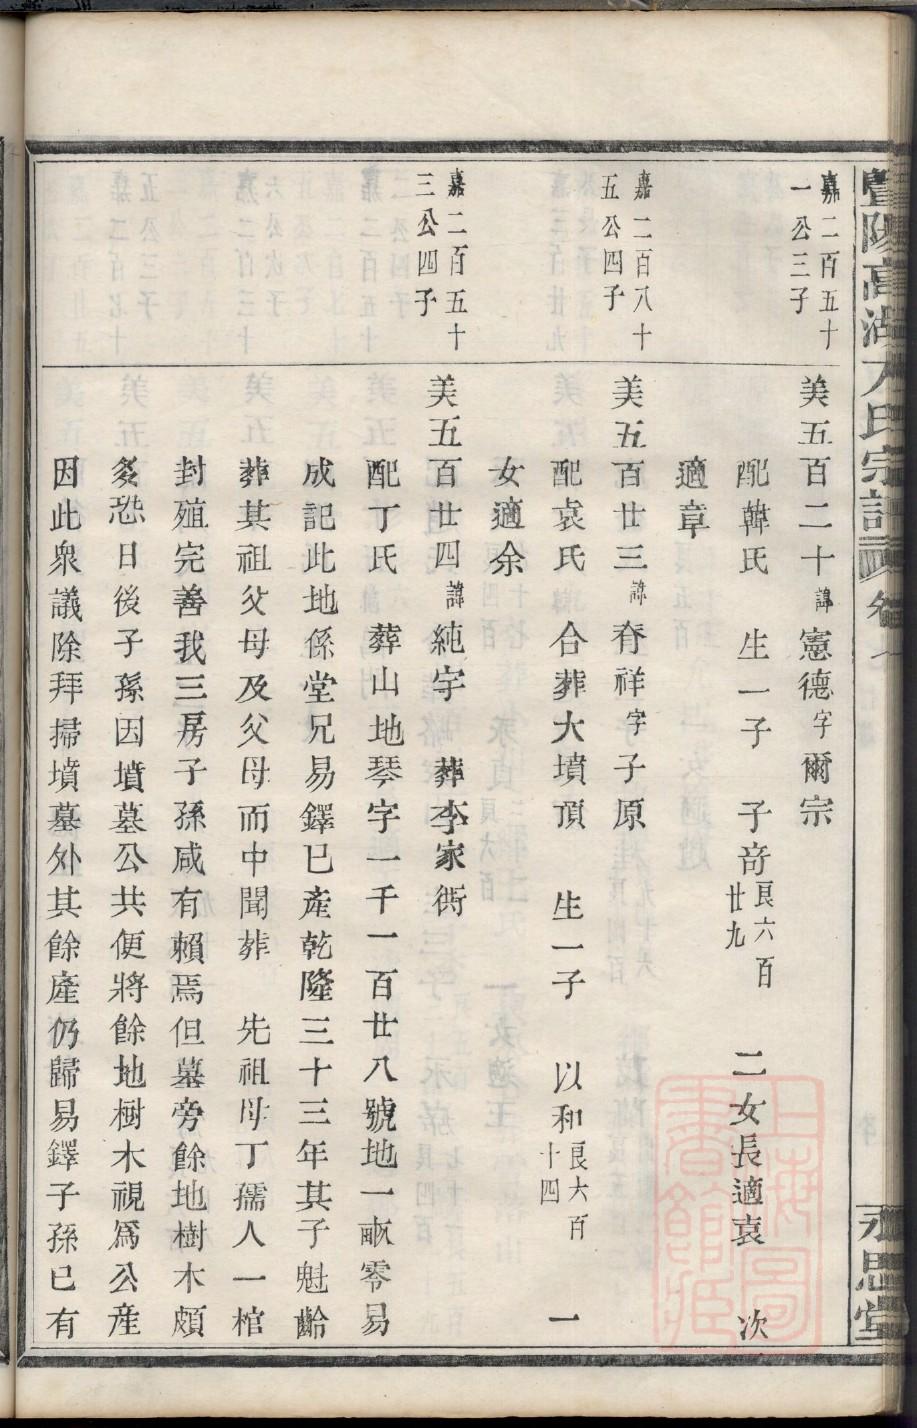 暨陽高湖方氏宗譜 卷
永思堂
嘉二百五十
一公三子
美五百二十諱憲德字爾宗
配韓氏 生一子 子竒艮六百廿九 二女長適袁 次
適章
嘉二百八十
五公四子
美五百廿三諱脊祥字子原
配袁氏 合葬大墳頂 生一子 以和艮六百十四 一
女適余
嘉二百五十
三公四子
美五百廿四諱純宇 葬李家衖
配丁氏 葬山地琴字一千一百廿八號地一畝零易
成記此地係堂兄易鐸已產乾隆三十三年其子魁齡
葬其祖父母及父母而中聞葬 先祖母丁孺人一棺
封殖完善我三房子孫咸有賴焉但墓旁餘地樹木頗
多恐日後子孫因墳墓公共便將餘地樹木視爲公產
因此衆議除拜掃墳墓外其餘產仍歸易鐸子孫已有